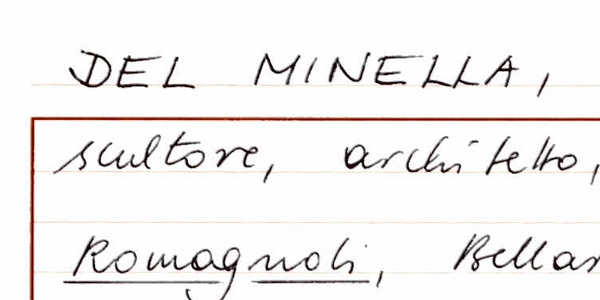 DEL MINELLA,
scultore, architetto,
Romagnoli, Bellar